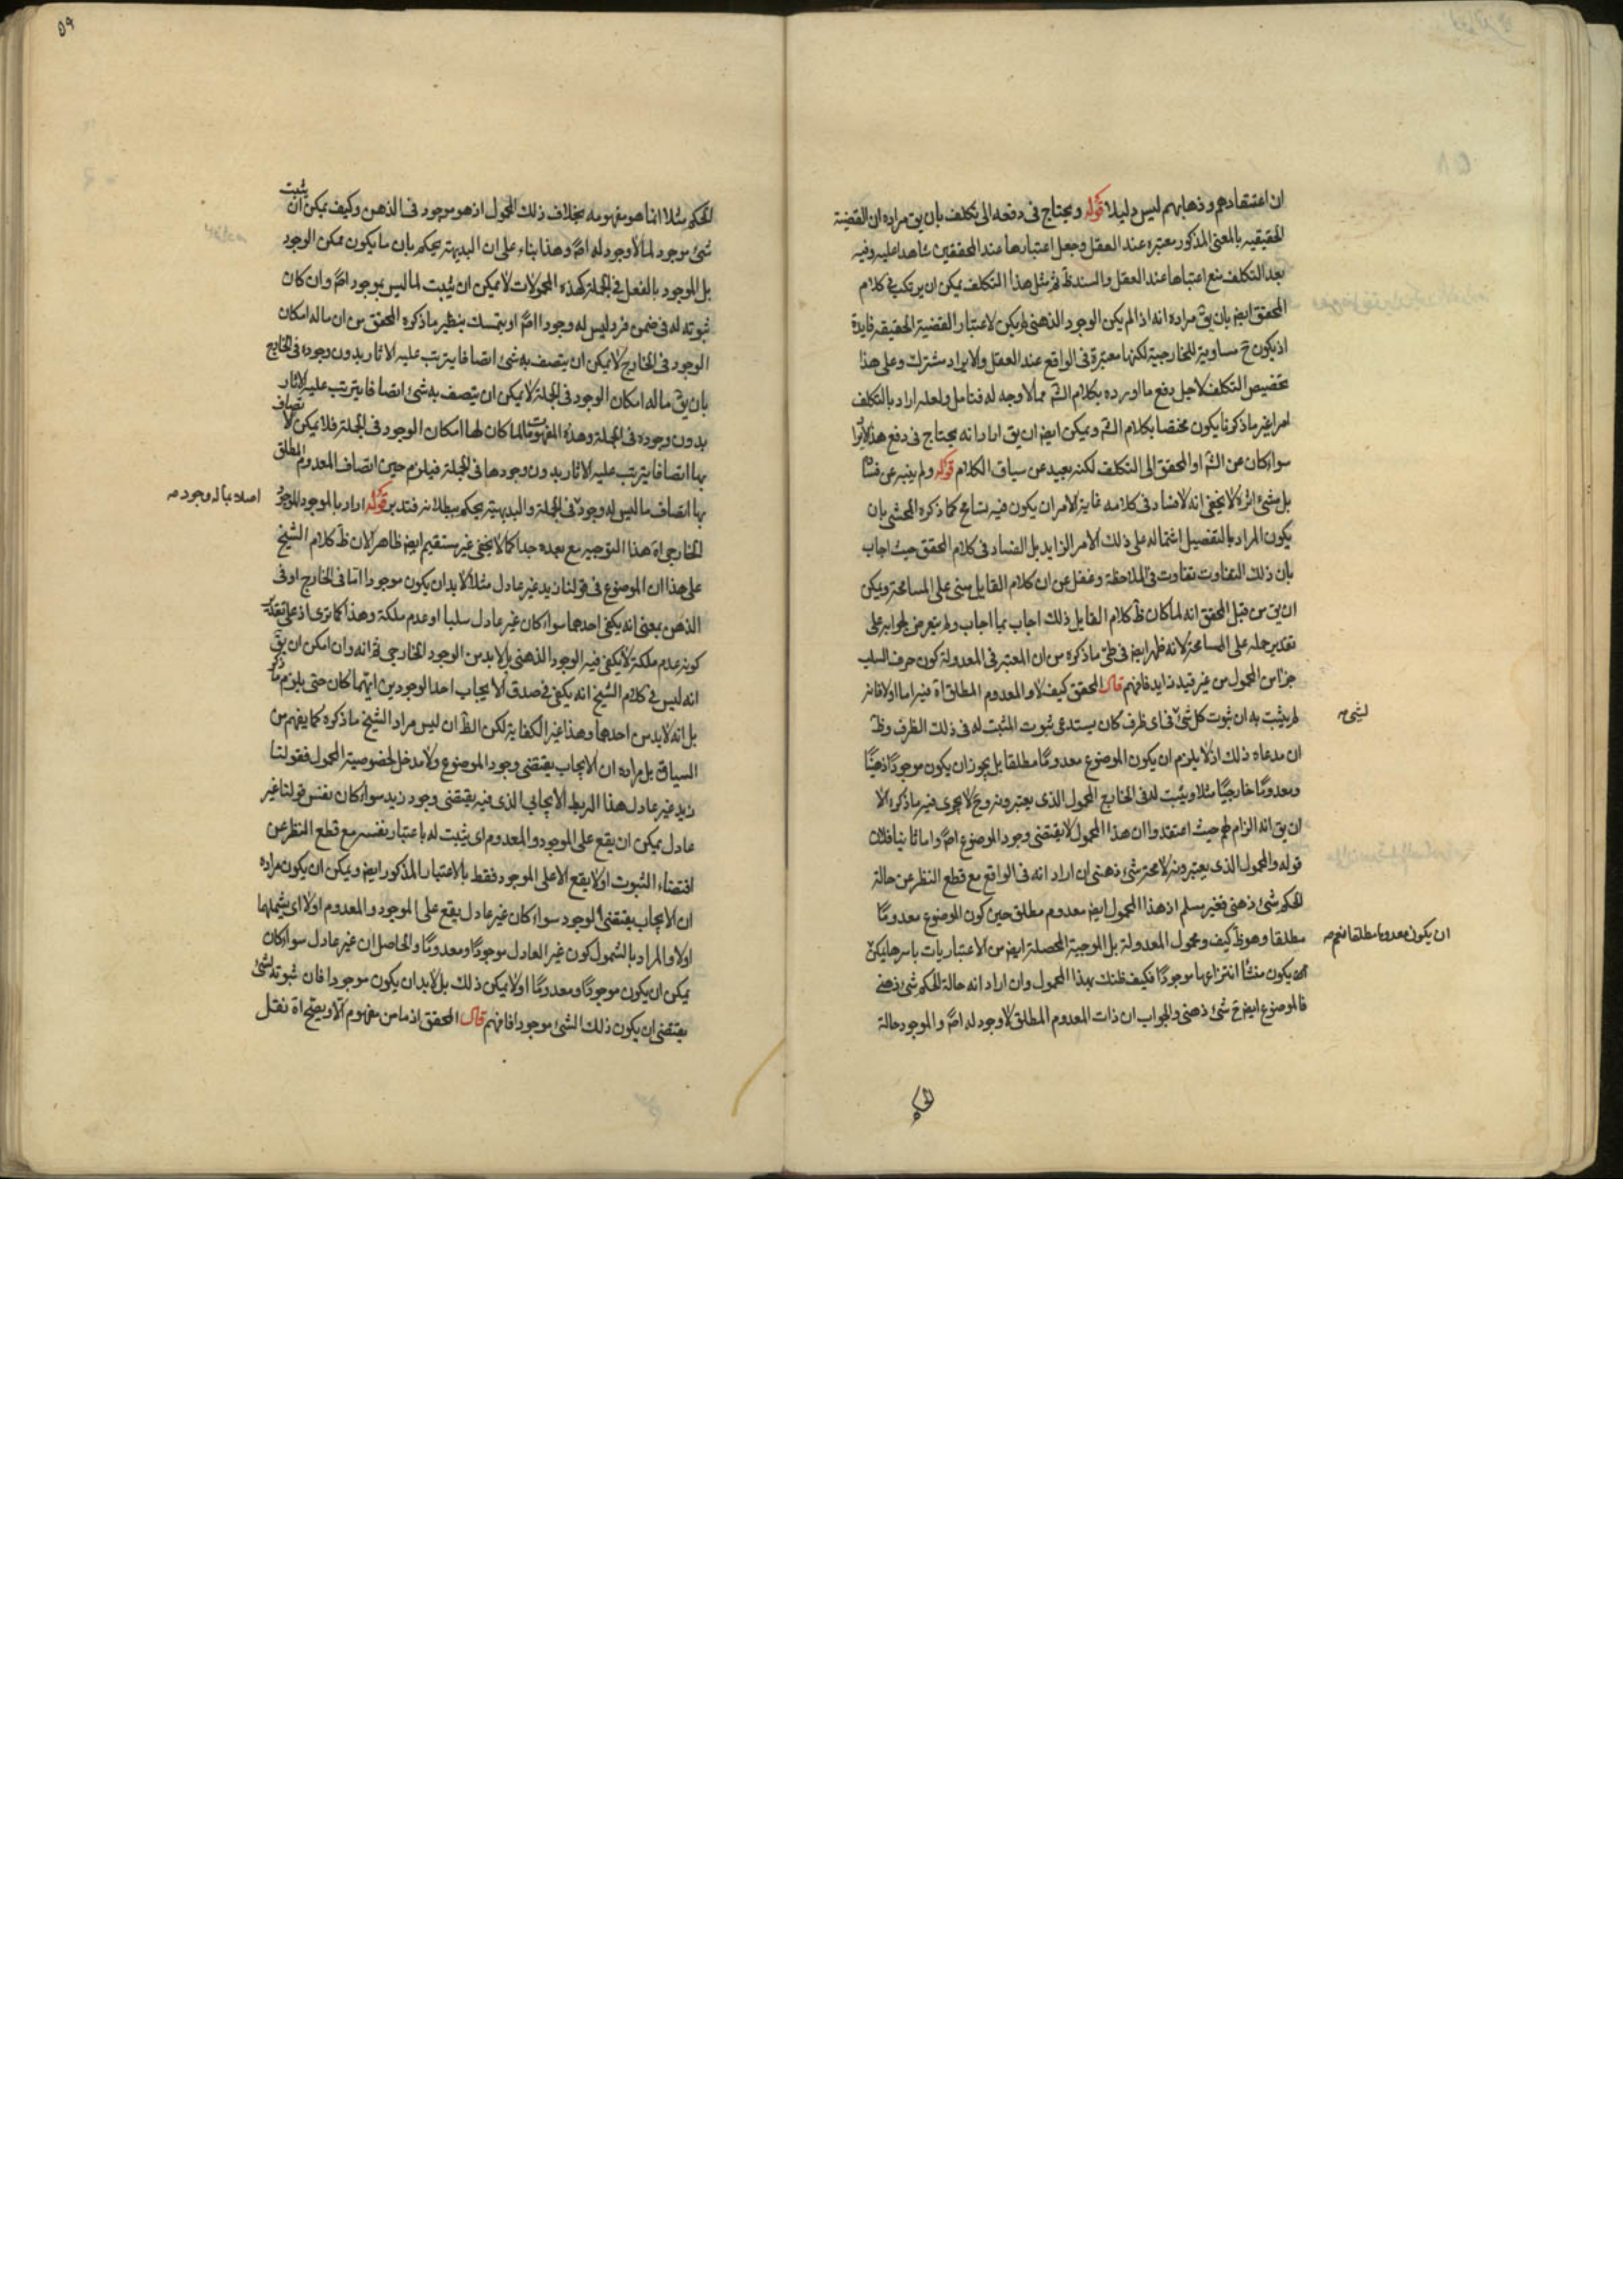 ان اعتقادهم وذهابهم ليس دليلا قوله ويحتاج فى دفعه الى تكلف بان يق مراده ان القضية
الحقيقيه بالمعنى المذكور معتبره عند العقل وجعل اعتبارها عند المحققين شاهدا عليه وفيه
بعد التكلف منع اعتبارها عند العقل والسند ظ ثم مثل هذا التكلف يمكن ان يرتكب فى كلام
المحقق ايض بان يق مراده انه اذا لم يكن الوجود الذهنى لم يكن لاعتبار القضية الحقيقيه فايدة
اذ يكون ح مساوية للخارجية لكنها معتبرة فى الواقع عند العقل والايراد مشترك وعلى هذا
تخصيص التكلف لاجل دفع ما اورده بكلام الشم مما لا وجه له فتامل ولعله اراد بالتكلف
امرا غير ما ذكرنا يكون مختصا بكلام الشم ويمكن ايض ان يق اراد انه يحتاج فى دفع هذا الايراد
سواء كان عن الشم او المحقق الى التكلف لكنه بعيد عن سياق الكلام قوله ولم ينبه عن فساد
بل شئ اخر لا يخفى انه لا فساد فى كلامه غاية الامر ان يكون فيه تسامح كما ذكره المحشى بان
يكون المراد بالتفصيل اشتماله على ذلك الامر الزايد بل الفساد فى كلام المحقق حيث اجاب
بان ذلك التفاوت تفاوت فى الملاحظة وغفل عن ان كلام القايل مبنى على المسامحة ويمكن
ان يق من قبل المحقق انه لما كان ظ كلام القايل ذلك اجاب بما اجاب ولم يتعرض لجوابه على
تقدير حمله على المسامحة لانه ظهر ايض فى طى ما ذكره من ان المعتبر فى المعدولة كون حرف السلب
جزا من المحمول من غير قيد زايد فافهم قال المحقق كيف لا والمعدوم المطلق اه فيه اما اولا فانه
لم يثبت به ان ثبوت كل شئ فى اى ظرف كان يستدعى ثبوت المثبت له فى ذلك الظرف وظ
لشئ صح
ان مدعاه ذلك اذ لا يلزم ان يكون الموضوع معدوما مطلقا بل يجوز ان يكون موجودا ذهنيا
ومعدوما خارجيا مثلا ويثبت له فى الخارج المحمول الذى يعتبرونه وح لا يجرى فيه ما ذكره الا
ان يق انه الزام لهم حيث اعتقدوا ان هذا المحمول لا يقتضى وجود الموضوع اصلا واما ثانيا فلان
قوله والمحمول الذى يعتبرونه لا محة شئ ذهنى ان اراد انه فى الواقع مع قطع النظر عن حالة
الحكم شئ ذهنى فغير مسلم اذ هذا المحمول ايض معدوم مطلق حين كون الموضوع معدوما
مطلقا وهو ظ كيف ومحمول المعدولة بل الموجبة المحصلة ايض من الاعتباريات باسرها يمكن
ان يكون معدوما مطلقا نعم صح
يكون منشأ انتزاعها موجودا فكيف ظنك بهذا المحمول وان اراد انه حالة الحكم شئ ذهنى
فالموضوع ايض ح شئ ذهنى والجواب ان ذات المعدوم المطلق لا وجود له اصلا والموجود حالة
الحكم
٥٩
الحكم مثلا انما هو مفهومه بخلاف ذلك المحمول اذ هو موجود فى الذهن وكيف يمكن ان يثبت
شئ موجود لما لا وجود له اصلا وهذا بناء على ان البديهة يحكم بان ما يكون ممكن الوجود
بل الموجود بالفعل فى الجملة كهذه المحمولات لا يمكن ان يثبت لما ليس بموجود اصلا وان كان
ثبوته له فى ضمن فرد ليس له وجود اصلا او يتمسك بنظير ما ذكره المحقق من ان ما له امكان
الوجود فى الخارج لا يمكن ان يتصف به شئ اتصافا يترتب عليه الاثار بدون وجوده فى الخارج
بان يق ما له امكان الوجود فى الجملة لا يمكن ان يتصف به شئ اتصافا يترتب عليه الاثار
بدون وجوده فى الجملة وهذه المفهومات لما كان لها امكان الوجود فى الجملة فلا يمكن الاتصاف
بها اتصافا يترتب عليه الاثار بدون وجودها فى الجملة فيلزم حين اتصاف المعدوم المطلق
بها اتصاف ما ليس له وجود فى الجملة والبديهية يحكم ببطلانه فتدبر قوله اراد بالموجود الموجود
اصلا بما له وجود صح
الخارجى اه هذا التوجيه مع بعده جدا كما لا يخفى غير مستقيم ايض ظاهر لان ظ كلام الشيخ
على هذا ان الموضوع فى قولنا زيد غير عادل مثلا لا بد ان يكون موجودا اما فى الخارج او فى
الذهن بمعنى انه يكفى احدهما سواء كان غير عادل سلبا او عدم ملكة وهذا كما ترى اذ على تقدير
كونه عدم ملكة لا يكفى فيه الوجود الذهنى بل لا بد من الوجود الخارجى ثم انه وان امكن ان يق
انه ليس فى كلام الشيخ انه يكفى فى صدق الايجاب احد الوجودين ايهما كان حتى يلزم ما ذكر
بل انه لا بد من احدهما وهذا غير الكفاية لكن الظ ان ليس مراد الشيخ ما ذكره كما يفهم من
السياق بل مراده ان الايجاب يقتضى وجود الموضوع ولا مدخل لخصوصية المحمول فقولنا
زيد غير عادل هذا الربط الايجابى الذى فيه يقتضى وجود زيد سواء كان نفس قولنا غير
عادل يمكن ان يقع على الموجود والمعدوم اى يثبت له باعتبار نفسه مع قطع النظر عن
اقتضاء الثبوت او لا يقع الا على الموجود فقط بالاعتبار المذكور ايض ويمكن ان يكون مراده
ان الايجاب يقتضى الوجود سواء كان غير عادل يقع على الموجود والمعدوم اولا اى يشملهما
اولا والمراد بالشمول كون غير العادل موجودا ومعدوما والحاصل ان غير عادل سواء كان
يمكن ان يكون موجودا ومعدوما اولا يمكن ذلك بل لا بد ان يكون موجودا فان ثبوته لشئ
يقتضى ان يكون ذلك الشئ موجودا فافهم قال المحقق اذ ما من مفهوم الا ويصح اه نقل